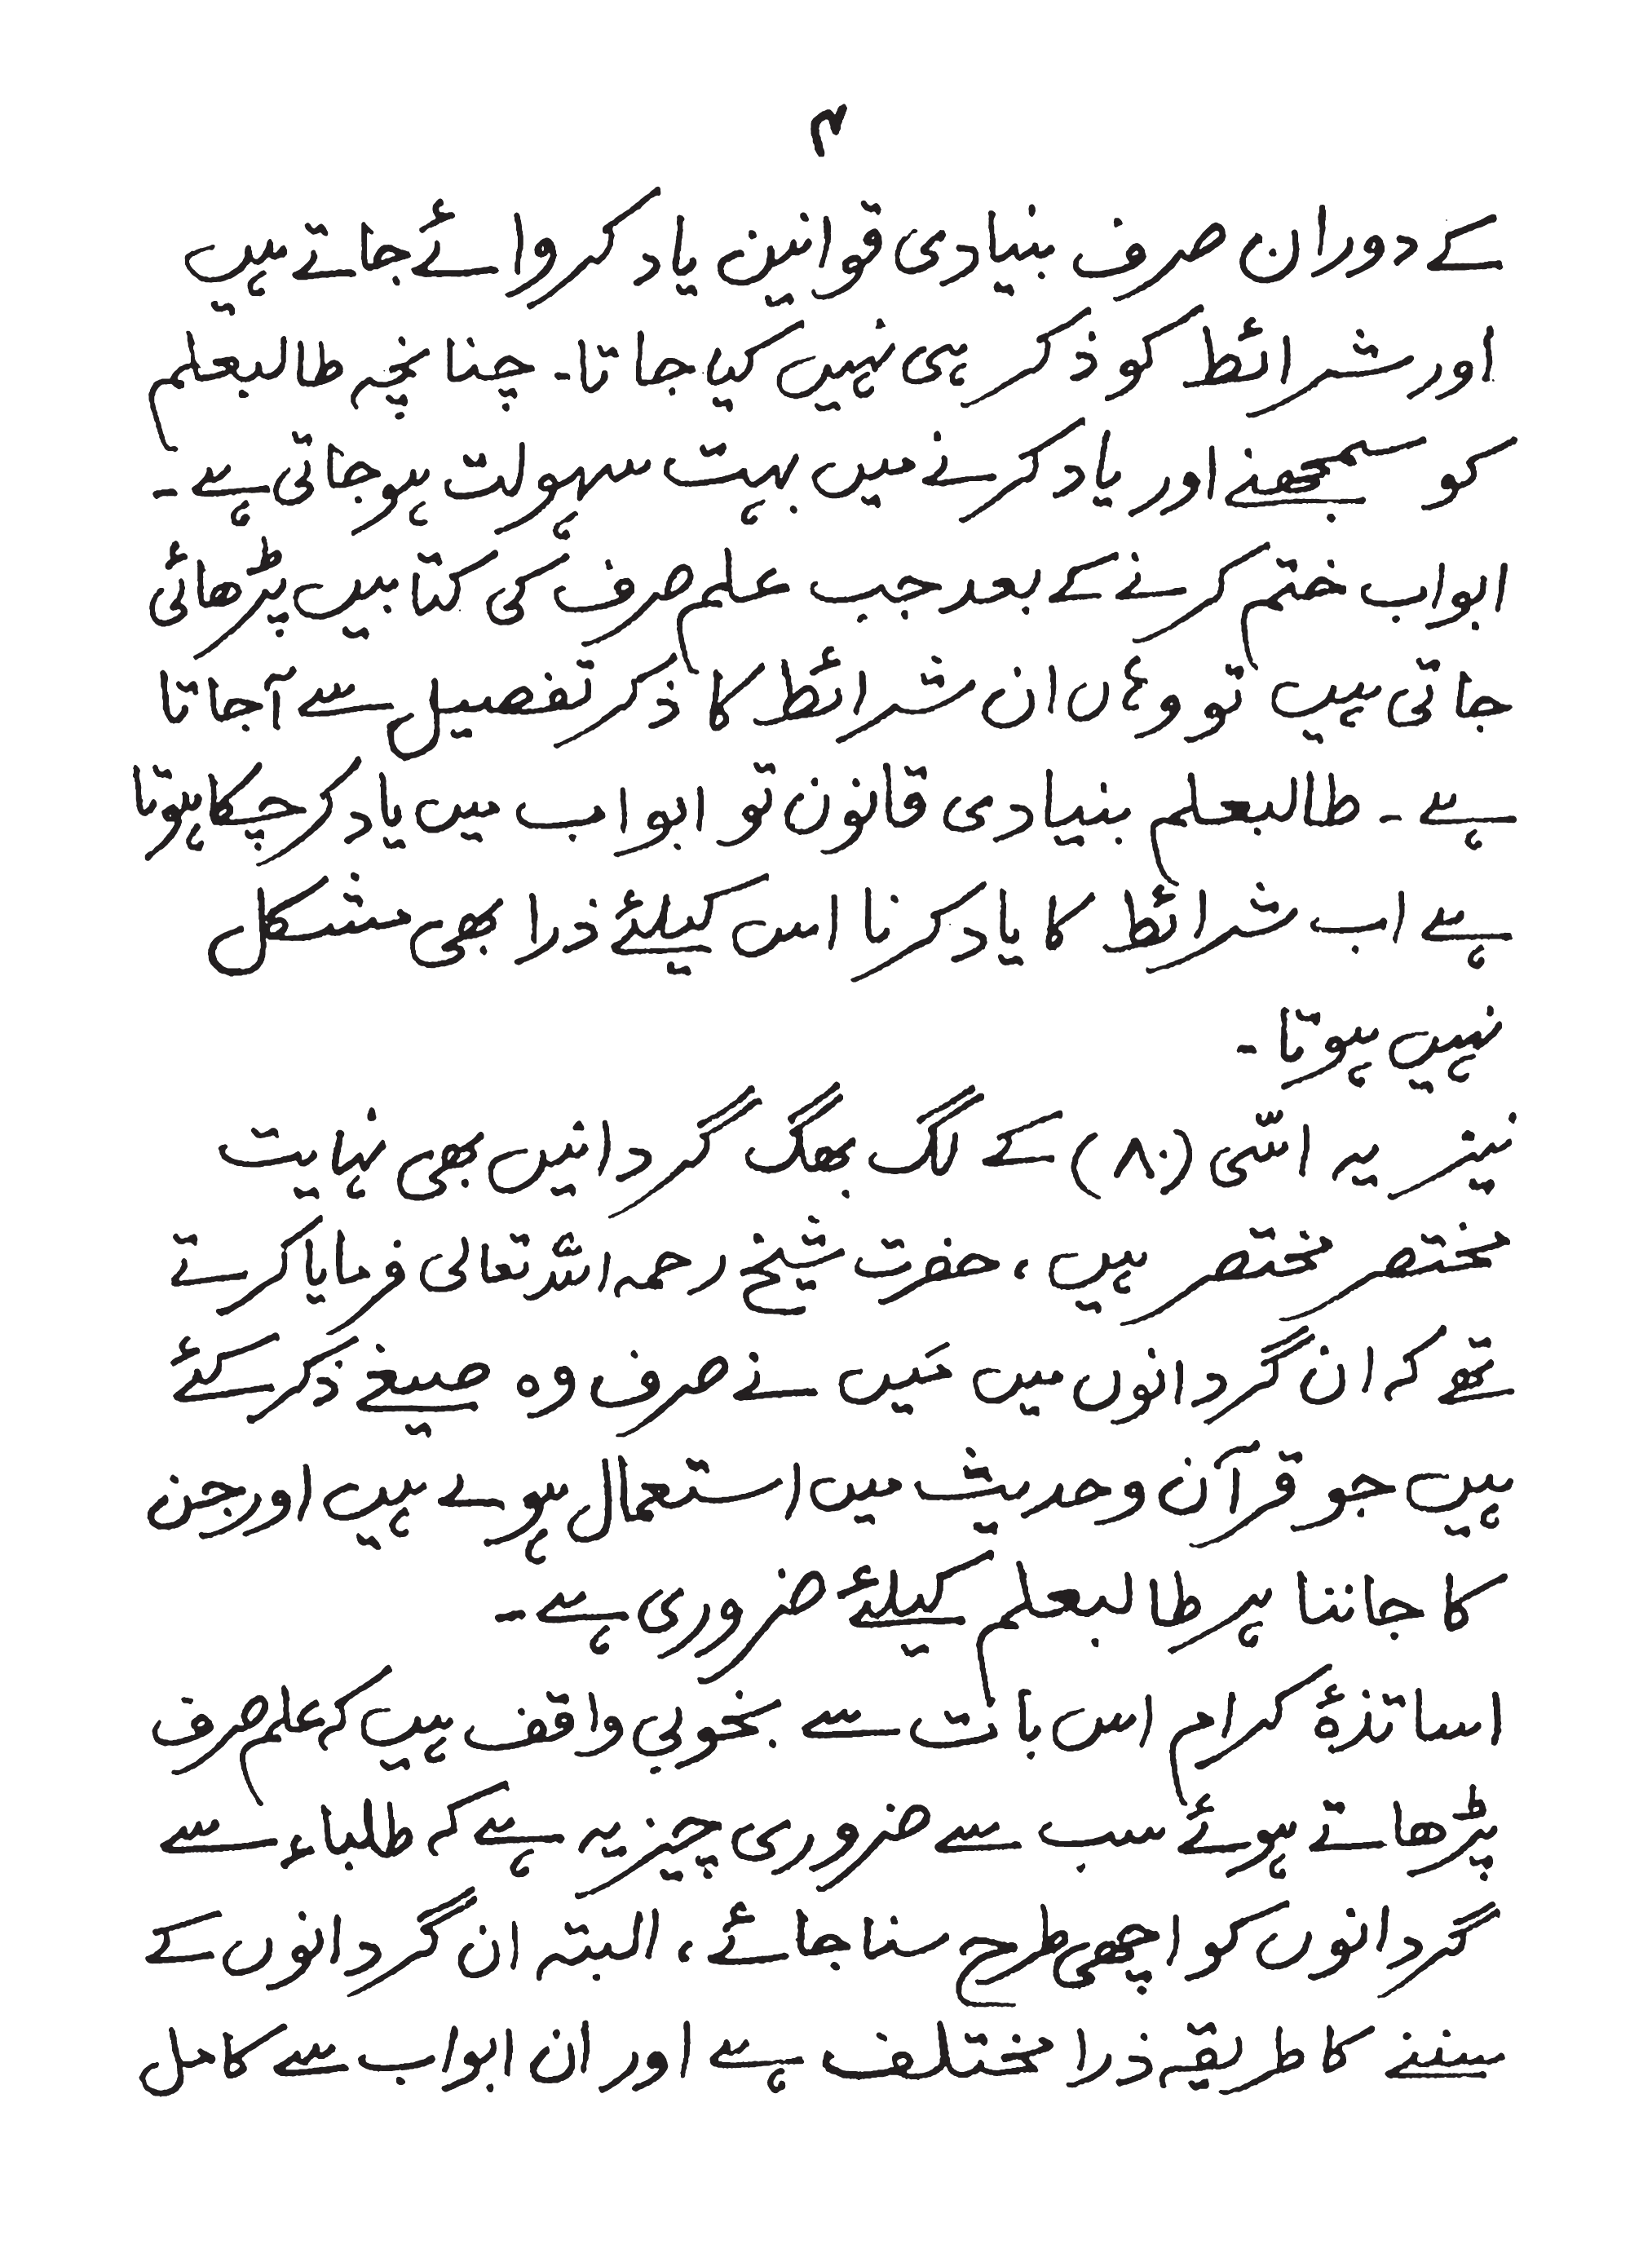 ۴
کے دوران صرف بنیادی قوانین یاد کروائے جاتے ہیں
اور شرائط کو ذکر ہی نہیں کیا جاتا۔ چنانچہ طالبعلم
کو سمجھنے اور یاد کرنے میں بہت سہولت ہو جاتی ہے۔
ابواب ختم کرنے کے بعد جب علم صرف کی کتابیں پڑھائی
جاتی ہیں تو وہاں ان شرائط کا ذکر تفصیل سے آجاتا
ہے۔ طالبعلم بنیادی قانون تو ابواب میں یاد کر چکا ہوتا
ہے اب شرائط کا یاد کرنا اس کیلئے ذرا بھی مشکل
نہیں ہوتا۔
نیز یہ اسّی (۸۰) کے لگ بھگ گردانیں بھی نہایت
مختصر مختصر ہیں، حضرت شیخ رحمہ اللہ تعالی فرمایا کرتے
تھے کہ ان گردانوں میں مَیں نے صرف وہ صیغے ذکر کئے
ہیں جو قرآن و حدیث میں استعمال ہوے ہیں اور جن
کا جاننا ہر طالبعلم کیلئے ضروری ہے۔
اساتذۂ کرام اس بات سے بخوبی واقف ہیں کہ علم صرف
پڑھاتے ہوئے سب سے ضروری چیز یہ ہے کہ طلباء سے
گردانوں کو اچھی طرح سنا جائے، البتہ ان گردانوں کے
سننے کا طریقہ ذرا مختلف ہے اور ان ابواب سے کامل